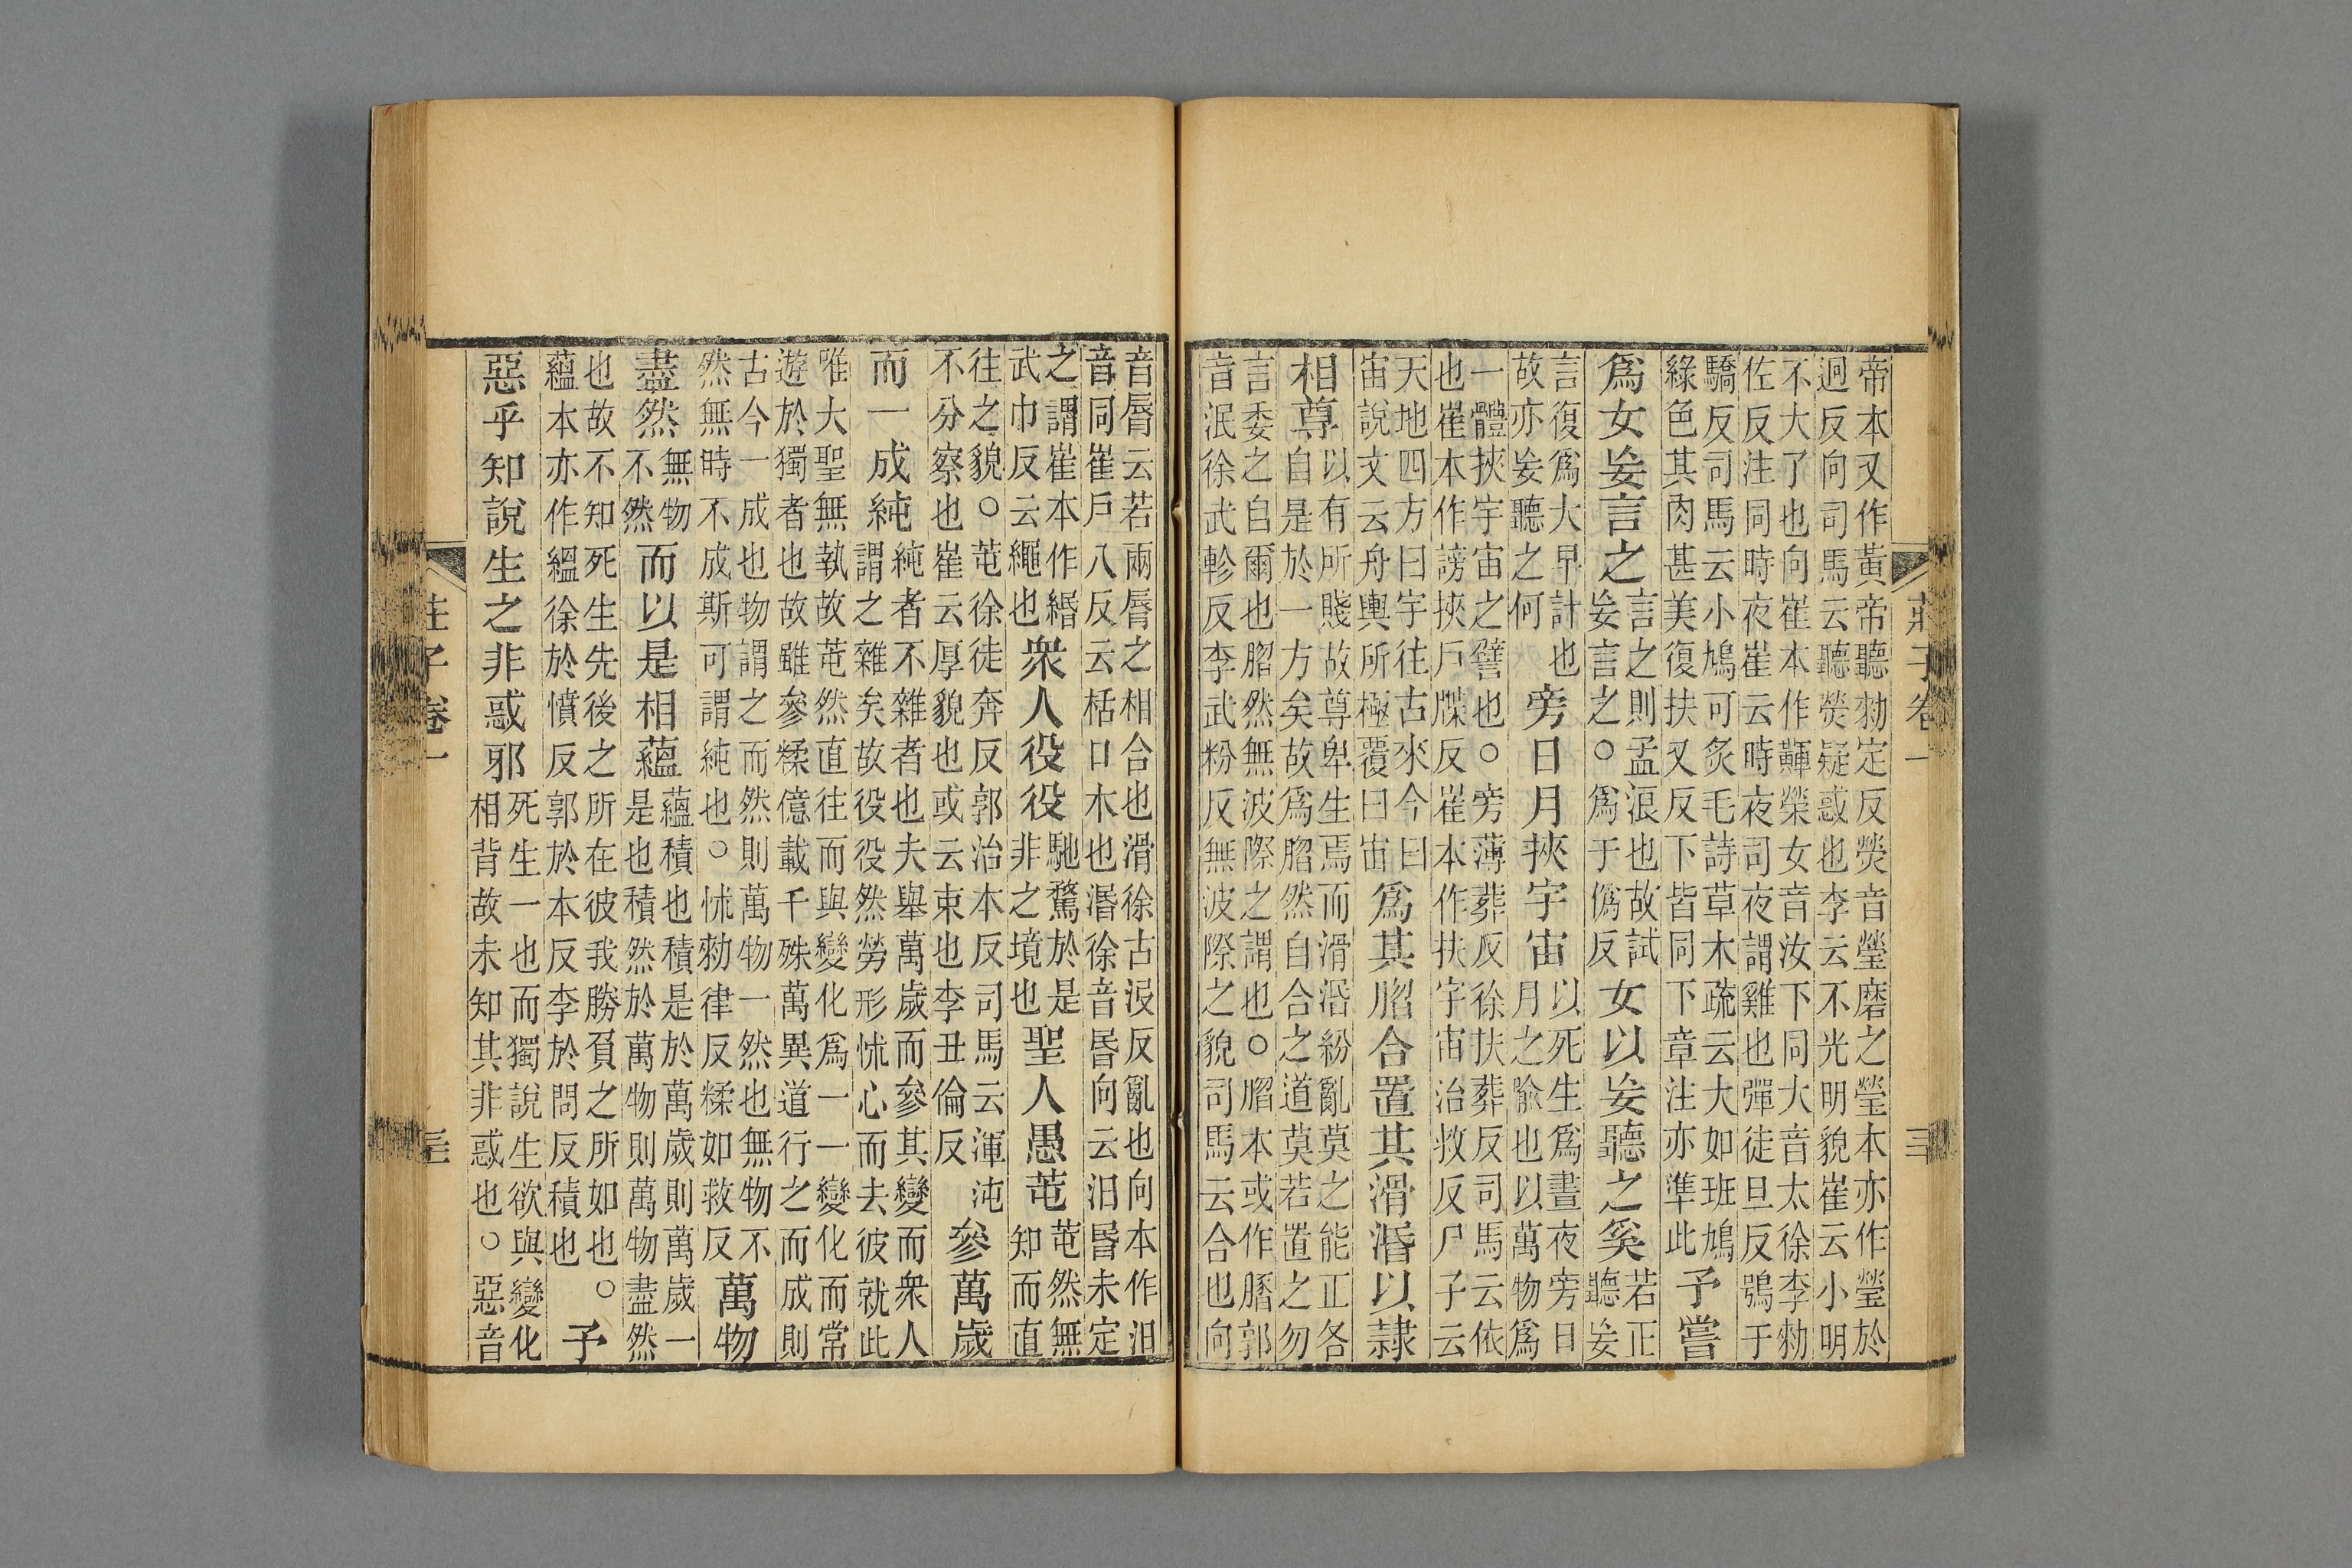 莊子卷一
帝本又作黃帝聽勑定反熒音瑩磨之瑩本亦作瑩於
迥反向司馬云聽熒疑惑也李云不光明貌崔云小明
不大了也向崔本作䩵榮女音汝下同大音太徐李勑
佐反注同時夜崔云時夜司夜謂雞也彈徒旦反鴞于
驕反司馬云小鳩可炙毛詩草木疏云大如班鳩
綠色其肉甚美復扶又反下皆同下章注亦準此
予嘗
爲女妄言之
言之則孟浪也故試
妄言之○爲于僞反
女以妄聽之奚
若正
聽妄
言復爲大早計也
故亦妄聽之何
旁日月挾宇宙
以死生爲晝夜旁日
月之喩也以萬物爲
一體挾宇宙之譬也○旁薄葬反徐扶葬反司馬云依
也崔本作謗挾戶牒反崔本作扶宇宙治救反尸子云
天地四方曰宇往古來今曰
宙說文云舟輿所極覆曰宙
爲其脗合置其滑涽以隷
相尊
以有所賤故尊卑生焉而滑涽紛亂莫之能正各
自是於一方矣故爲脗然自合之道莫若置之勿
言委之自爾也脗然無波際之謂也○脗本或作䐇郭
音泯徐武軫反李武粉反無波際之貌司馬云合也向
音脣云若兩脣之相合也滑徐古沒反亂也向本作汨
音同崔戶八反云栝口木也涽徐音昬向云汨昬未定
之謂崔本作緡
武巾反云繩也
衆人役役
馳騖於是
非之境也
聖人愚芚
芚然無
知而直
往之貌○芚徐徒奔反郭治本反司馬云渾沌
不分察也崔云厚貌也或云束也李丑倫反
參萬歲
而一成純
純者不雜者也夫舉萬歲而參其變而衆人
謂之雜矣故役役然勞形怵心而去彼就此
唯大聖無執故芚然直往而與變化爲一一變化而常
遊於獨者也故雖參糅億載千殊萬異道行之而成則
古今一成也物謂之而然則萬物一然也無物不
然無時不成斯可謂純也○怵勑律反糅如救反
萬物
盡然
無物
不然
而以是相蘊
蘊積也積是於萬歲則萬歲一
是也積然於萬物則萬物盡然
也故不知死生先後之所在彼我勝負之所如也○
蘊本亦作縕徐於憤反郭於本反李於問反積也
予
惡乎知說生之非惑邪
死生一也而獨說生欲與變化
相背故未知其非惑也○惡音
子卷一